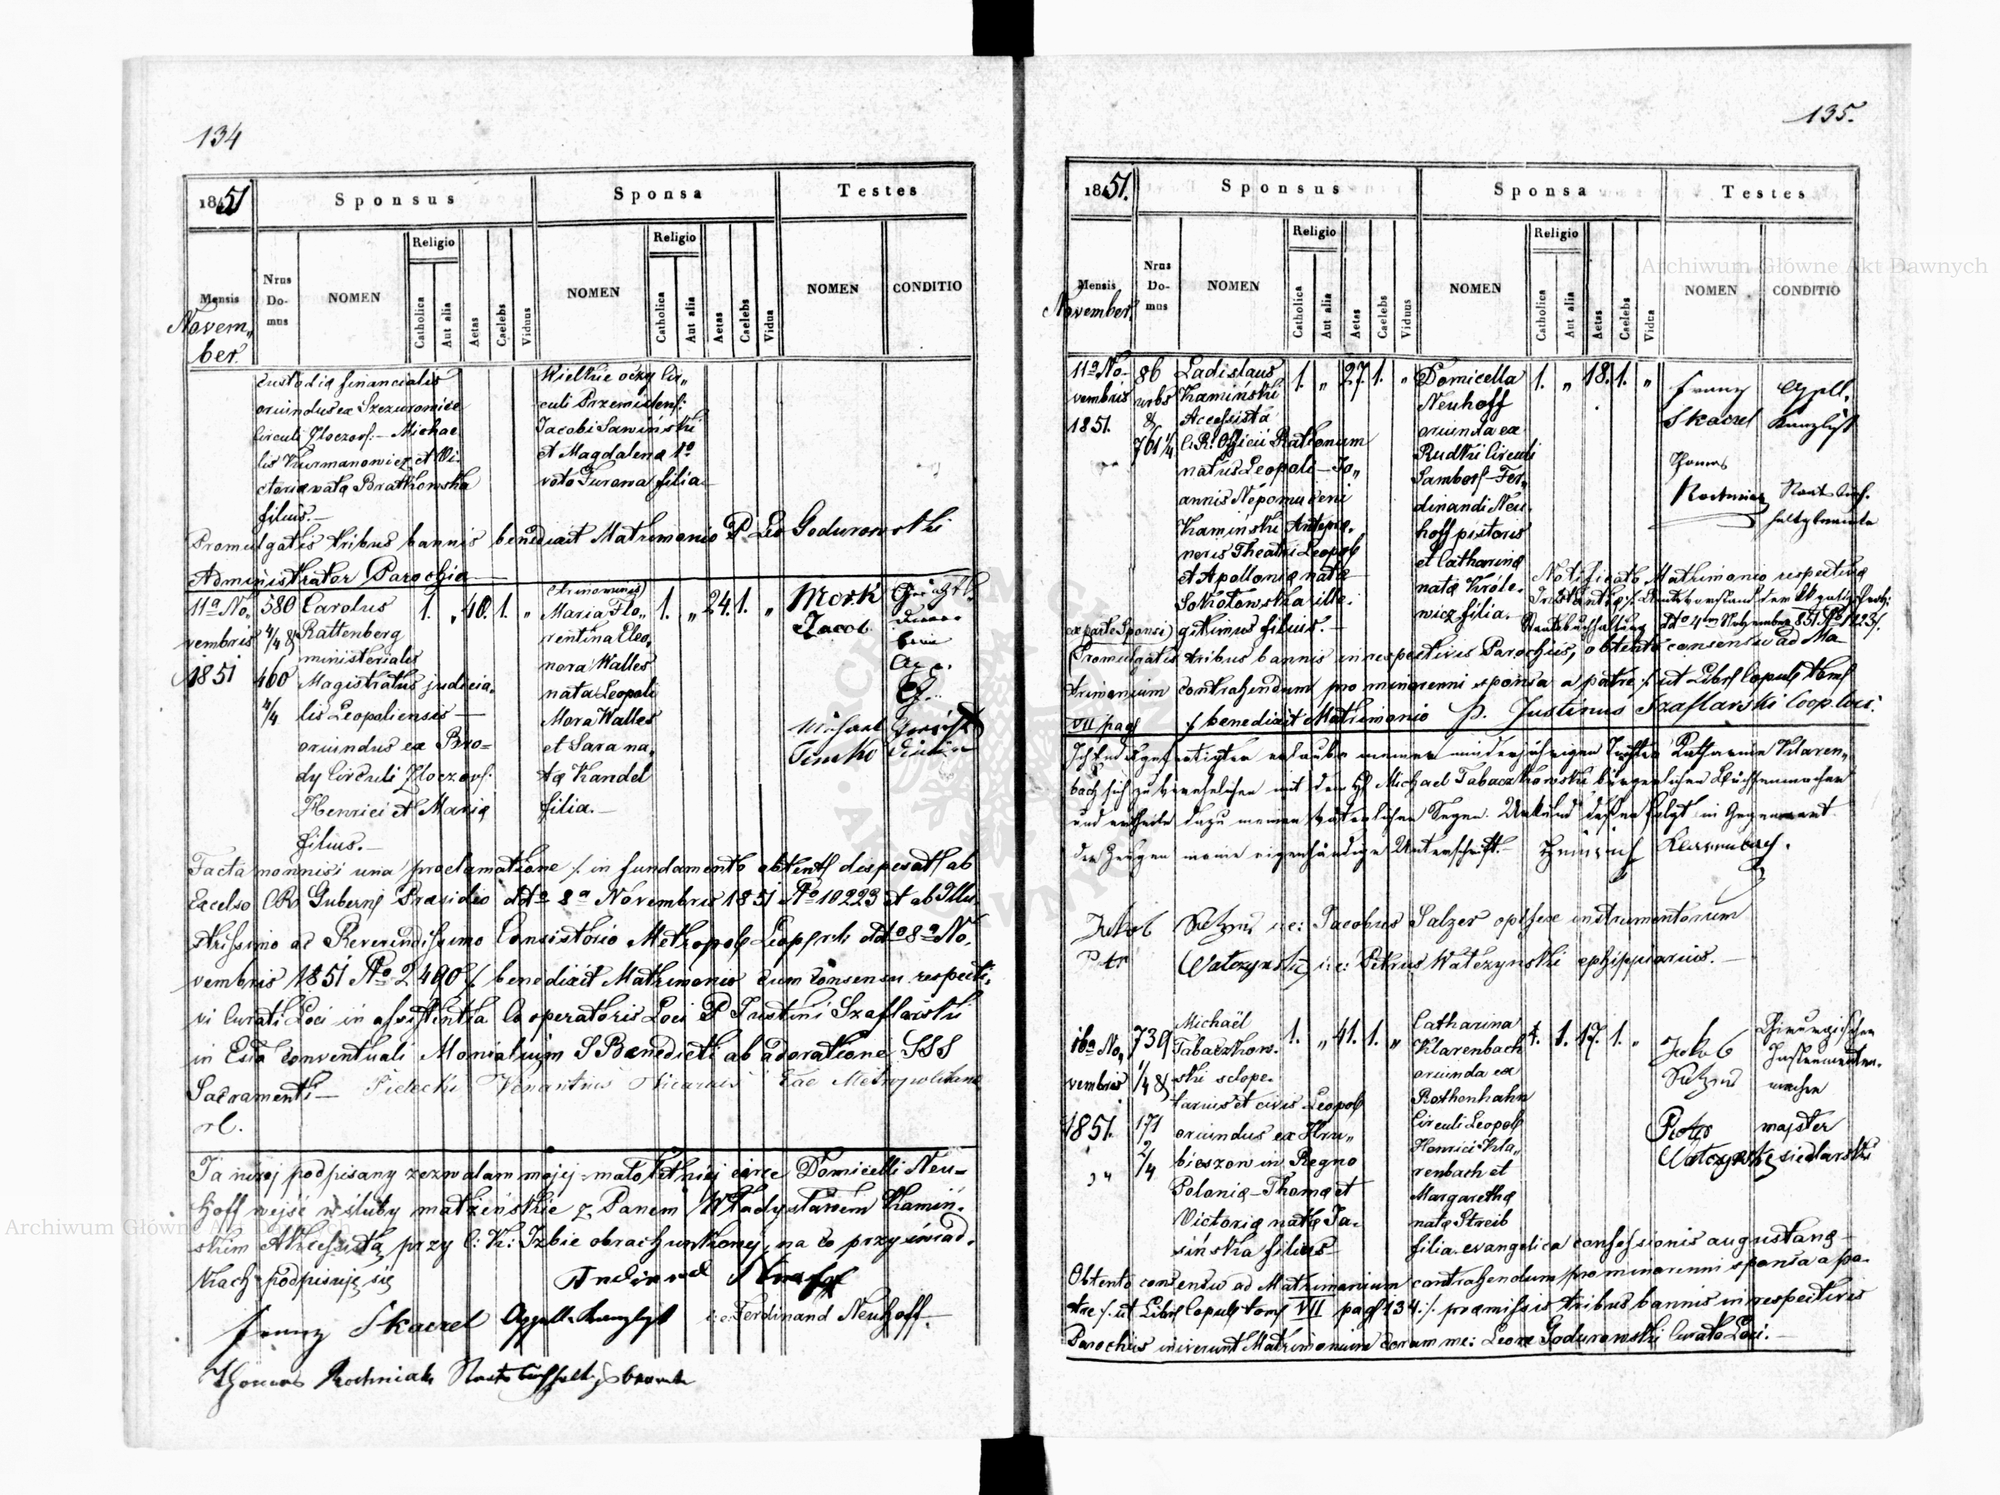 134
1851
Sponsus
Sponsa
Testes
Mensis
Novem„
ber.
Nrus
Do-
mus
NOMEN
Religio
Catholica
Aut alia
Aetas
Caelebs
Viduus
NOMEN
Religio
Catholica
Aut alia
Aetas
Caelebs
Vidua
NOMEN
CONDITIO
custodia financialis
oriundus ex Szczurowice
Circuli Zloczov: – Michae
lis Kurmanowicz et Vi-
ctoria nata Bratkowska
filius.–
Wielkie oczy Cir„
culi Przemislens:
Jacobi Sawinski
et Magdalena 1º
voto Gurowa filia
Promulgatis tribus bannis benedixit Matrimonio P. Leo Godurowski
Administrator Parochia
11ª No„
vembris
1851
580
4/4 &
460
4/4
Carolus
Rattenberg
ministerialis
Magistratus judicia„
lis Leopoliensis –
oriundus ex Bro=
dy Circuli Zloczov:
Henrici et Maria
filius.–
1. „ 40. 1. „
(trinominis)
Maria Flo„
rentina Eleo„
nora Walles
nata Leopoli
Mora Walles
et Sara na„
ta Kandel
filia.–
1. „ 24. 1. „
Mork
Jacob
Michael
Timko
Facta nonnisi una proclamatione /: in fundamento obtent dispesat ab
Excelso CR Gubernij Prasidio ddto 8ª Novembris 1851 No 10223 et ab Illu„
strissimo ac Reverendissimo Consistorio Metropol Leopol ddto 8ª No„
vembris 1851 No 2490 /: benedixit Matrimonio cum consensu respecti„
vi Curati Loci in assistentia Cooperatoris Loci P Justini Szaflarski
in Ecla Conventuali Monialium S Benedicti ab adoratione SSS
Sacramenti – Pielecki Venantius Vicarius Ecae Metropolitana
rl.
Ja niżej podpisany zezwalam mojej małoletniej córce Domicelli Neu-
hoff wejść w śluby małżeńskie z Panem Władysławem Kamiń„
skim Akcessistą przy C: K: Izbie obrachunkowej, na co przy świad„
kach podpisuję się
i:e: Ferdinand Neuhoff.–
Franz Skaczel Appell. Kanzlist
Thomas Rochniak Staatsbuchhaltgsbeamte
135.
1851.
Sponsus
Sponsa
Testes
Mensis
November.
Nrus
Do-
mus
NOMEN
Religio
Catholica
Aut alia
Aetas
Caelebs
Viduus
NOMEN
Religio
Catholica
Aut alia
Aetas
Caelebs
Vidua
NOMEN
CONDITIO
11ª No-
vembris
1851.
86
urbs
&
761 1/4
Ladislaus
Kamiński
Accessista
C: R: Officii Rationum
natus Leopoli – Jo„
annis Nepomuceni
Kamiński Antepre„
neris Theatri Leopol
et Apollonia nata
Sokołowska ille„
gitimus filius.–
1. „ 27. 1. „
Domicella
Neuhoff
oriunda ex
Rudki Circuli
Sambor – Fer„
dinandi Neu„
hoff pistoris
et Catharina
nata Króle„
wicz filia.–
1. „ 18. 1. „
Franz
Skaczel
Appll.
Kanzlist
Thomas
Rochniak
Staatsbuch.
haltgbeamte
Notificato Matrimonio respectiva
(ex parte Sponsi)
Promulgatis tribus bannis in respectivis Parochiis, obtento consensu ad Ma
trimonium contrahendum pro minorenni sponsa a patre /: ut Libr Copul tom
VII pag /: benedixit Matrimonio P. Justinus Szaflarski Coop. loci.
Ich Endesgefertigter erlaube meiner minderjährigen Tochter Katharina Klaren„
bach sich zu verehelichen mit dem H. Michael Tabaczkowski bürgerlichen Büchsenmacher
und ertheile dazu meinen väterlichen Segen. Urkund dessen folgt in Gegenwart
der Zeugen meine eigenhändige Unterschrift.– Heinrich Klarenbach.
Jakob Salzer i:e: Jacobus Salzer opifex instrumentorum
Petr Walczynski i:e: Petrus Walczynski ephippiarius.–
16ª No„
vembris
1851.
739
1/4 &
171
2/4
Michaël
Tabaczkow„
ski sclope„
tarius et civis Leopol
oriundus ex Hru„
bieszow in Regno
Polonia – Thoma et
Victoria nata Ja„
sińska filius
1. „ 41. 1. „
Catharina
Klarenbach
oriunda ex
Rothenhahn
Circuli Leopol
Henrici Kla„
renbach et
Margaretha
nata Streib
filia. evangelica confessionis augustana –
1. 17. 1. „
Jakob
Salzer
Chirurgischer
Instrumenten„
macher
Piotr
Walczynski
majster
siedlarski
Obtento consensu ad Matrimonium contrahendum pro minorenni sponsa a pa„
tre /: ut Libr Copul tom VII pag 134 :/ præmissis tribus bannis in respectivis
Parochiis iniverunt Matrimonium coram me: Leone Godurowski Curato Loci.–
Archiwum Główne Akt Dawnych
Archiwum Główne Akt Dawnych